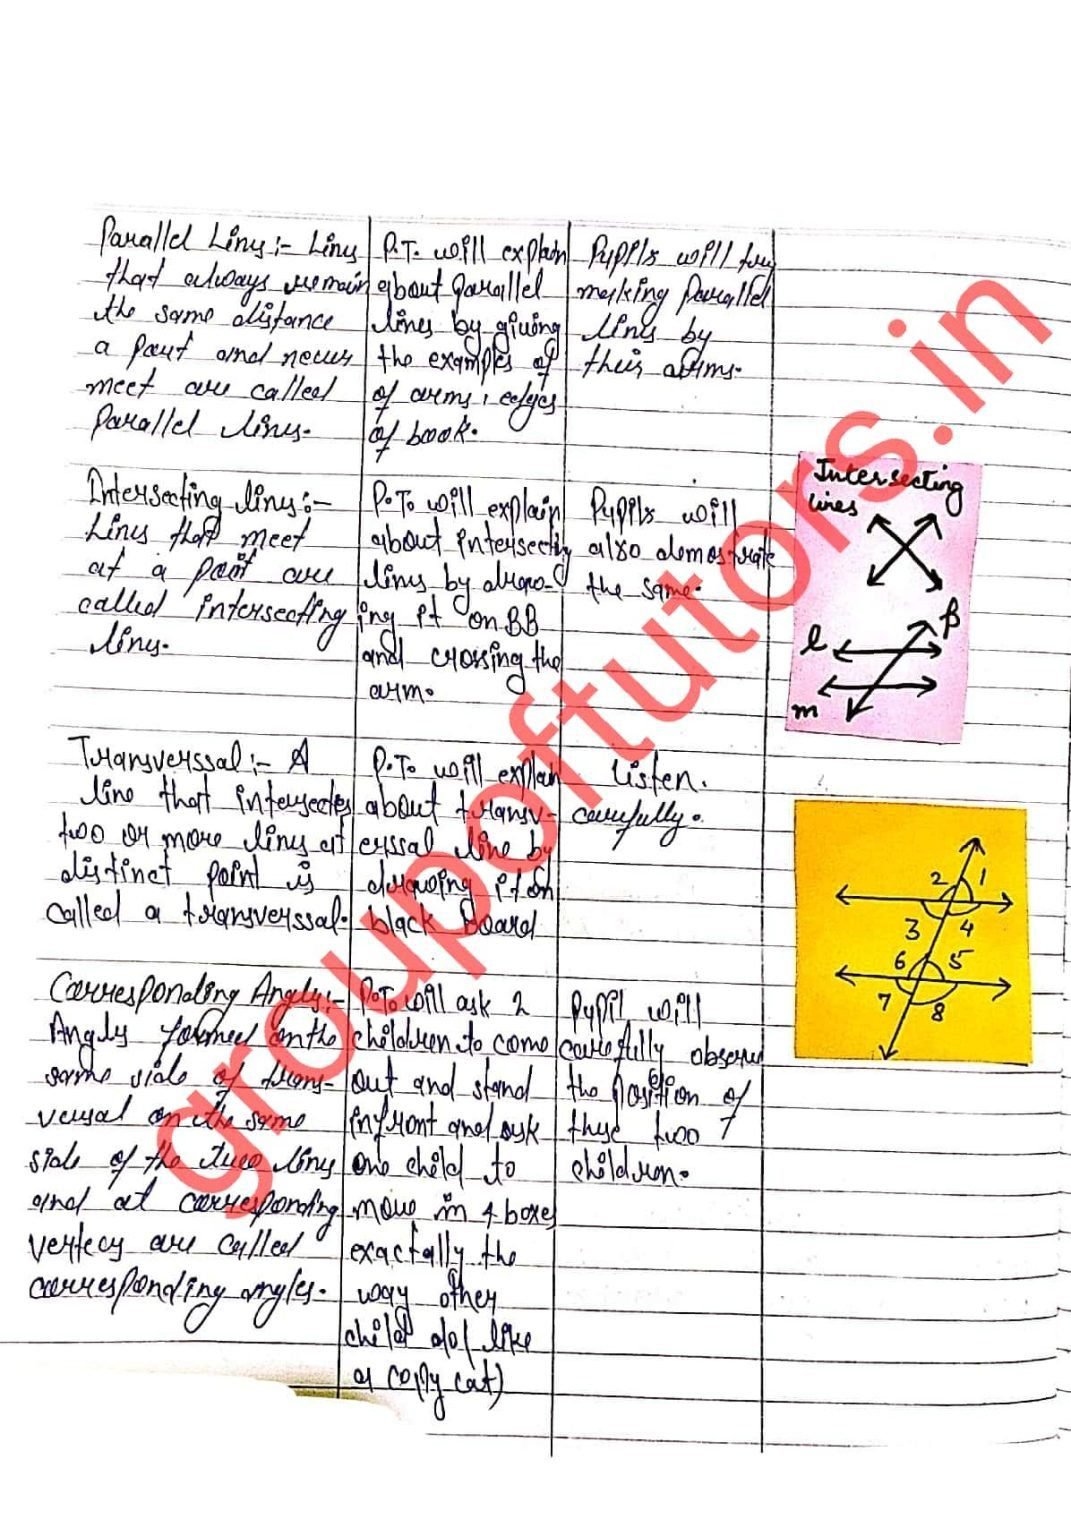 Parallel Lines:- Lines
that always remain
the same distance
a part and never
meet are called
Parallel lines.
P.T. will explain
about parallel
lines by giving
the examples of
of arms, edges
of book.
Pupils will try
making Parallel
lines by
their arms.
Intersecting lines:-
Lines that meet
at a point are
called intersecting
lines.
P.T. will explain
about intersecting
lines by draw-
ing it on BB
and crossing the
arm.
Pupils will
also demostrate
the same.
Intersecting
lines
l
p
m
Transverssal:- A
line that intersectes
two or more lines at
distinct point is
called a transverssal.
P.T. will explain
about transv-
erssal line by
drawing it on
black Board
Listen.
carefully.
2 1
3 4
6 5
7 8
Corresponding Angles:-
Angles formed on the
same side of trans-
versal on the same
side of the two lines
and at corresponding
vertecs are called
corresponding angles.
P.T. will ask 2
children to come
out and stand
infront and ask
one child to
move in 4 boxes
exactally the
way other
child do( like
a copy cat)
Pupil will
carefully observe
the position of
these two
children.
groupoftutors.in